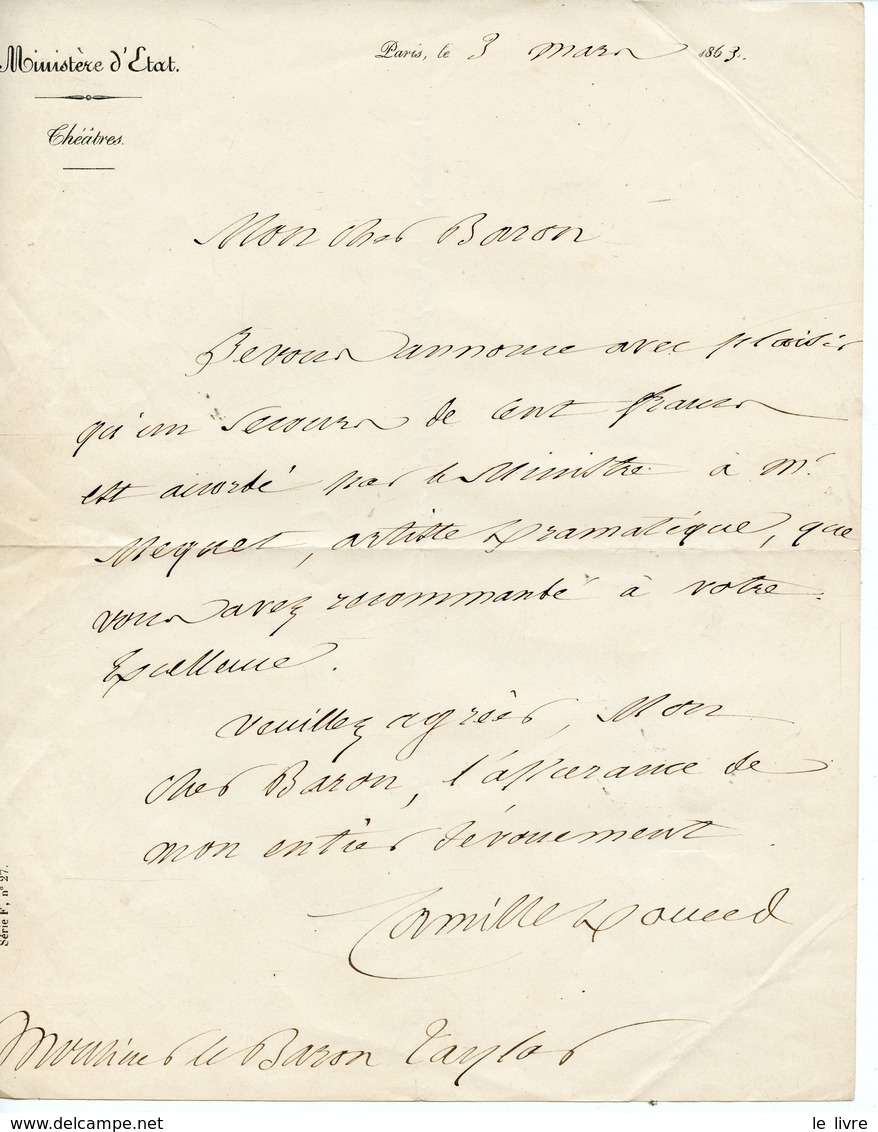 Ministère d'Etat.
Théâtres.
Paris, le 3 mars 1863.
Mon cher Baron
Je vous annonce avec plaisir
qu'un secours de cent francs
est accordé par le Ministre à Mr
Mequet, artiste dramatique, que
vous avez recommandé à votre
Excellence.
Veuillez agréer, Mon
cher Baron, l'assurance de
mon entier dévouement
Camille Doucet
Monsieur le Baron Taylor
Série F, n° 27.
le livre